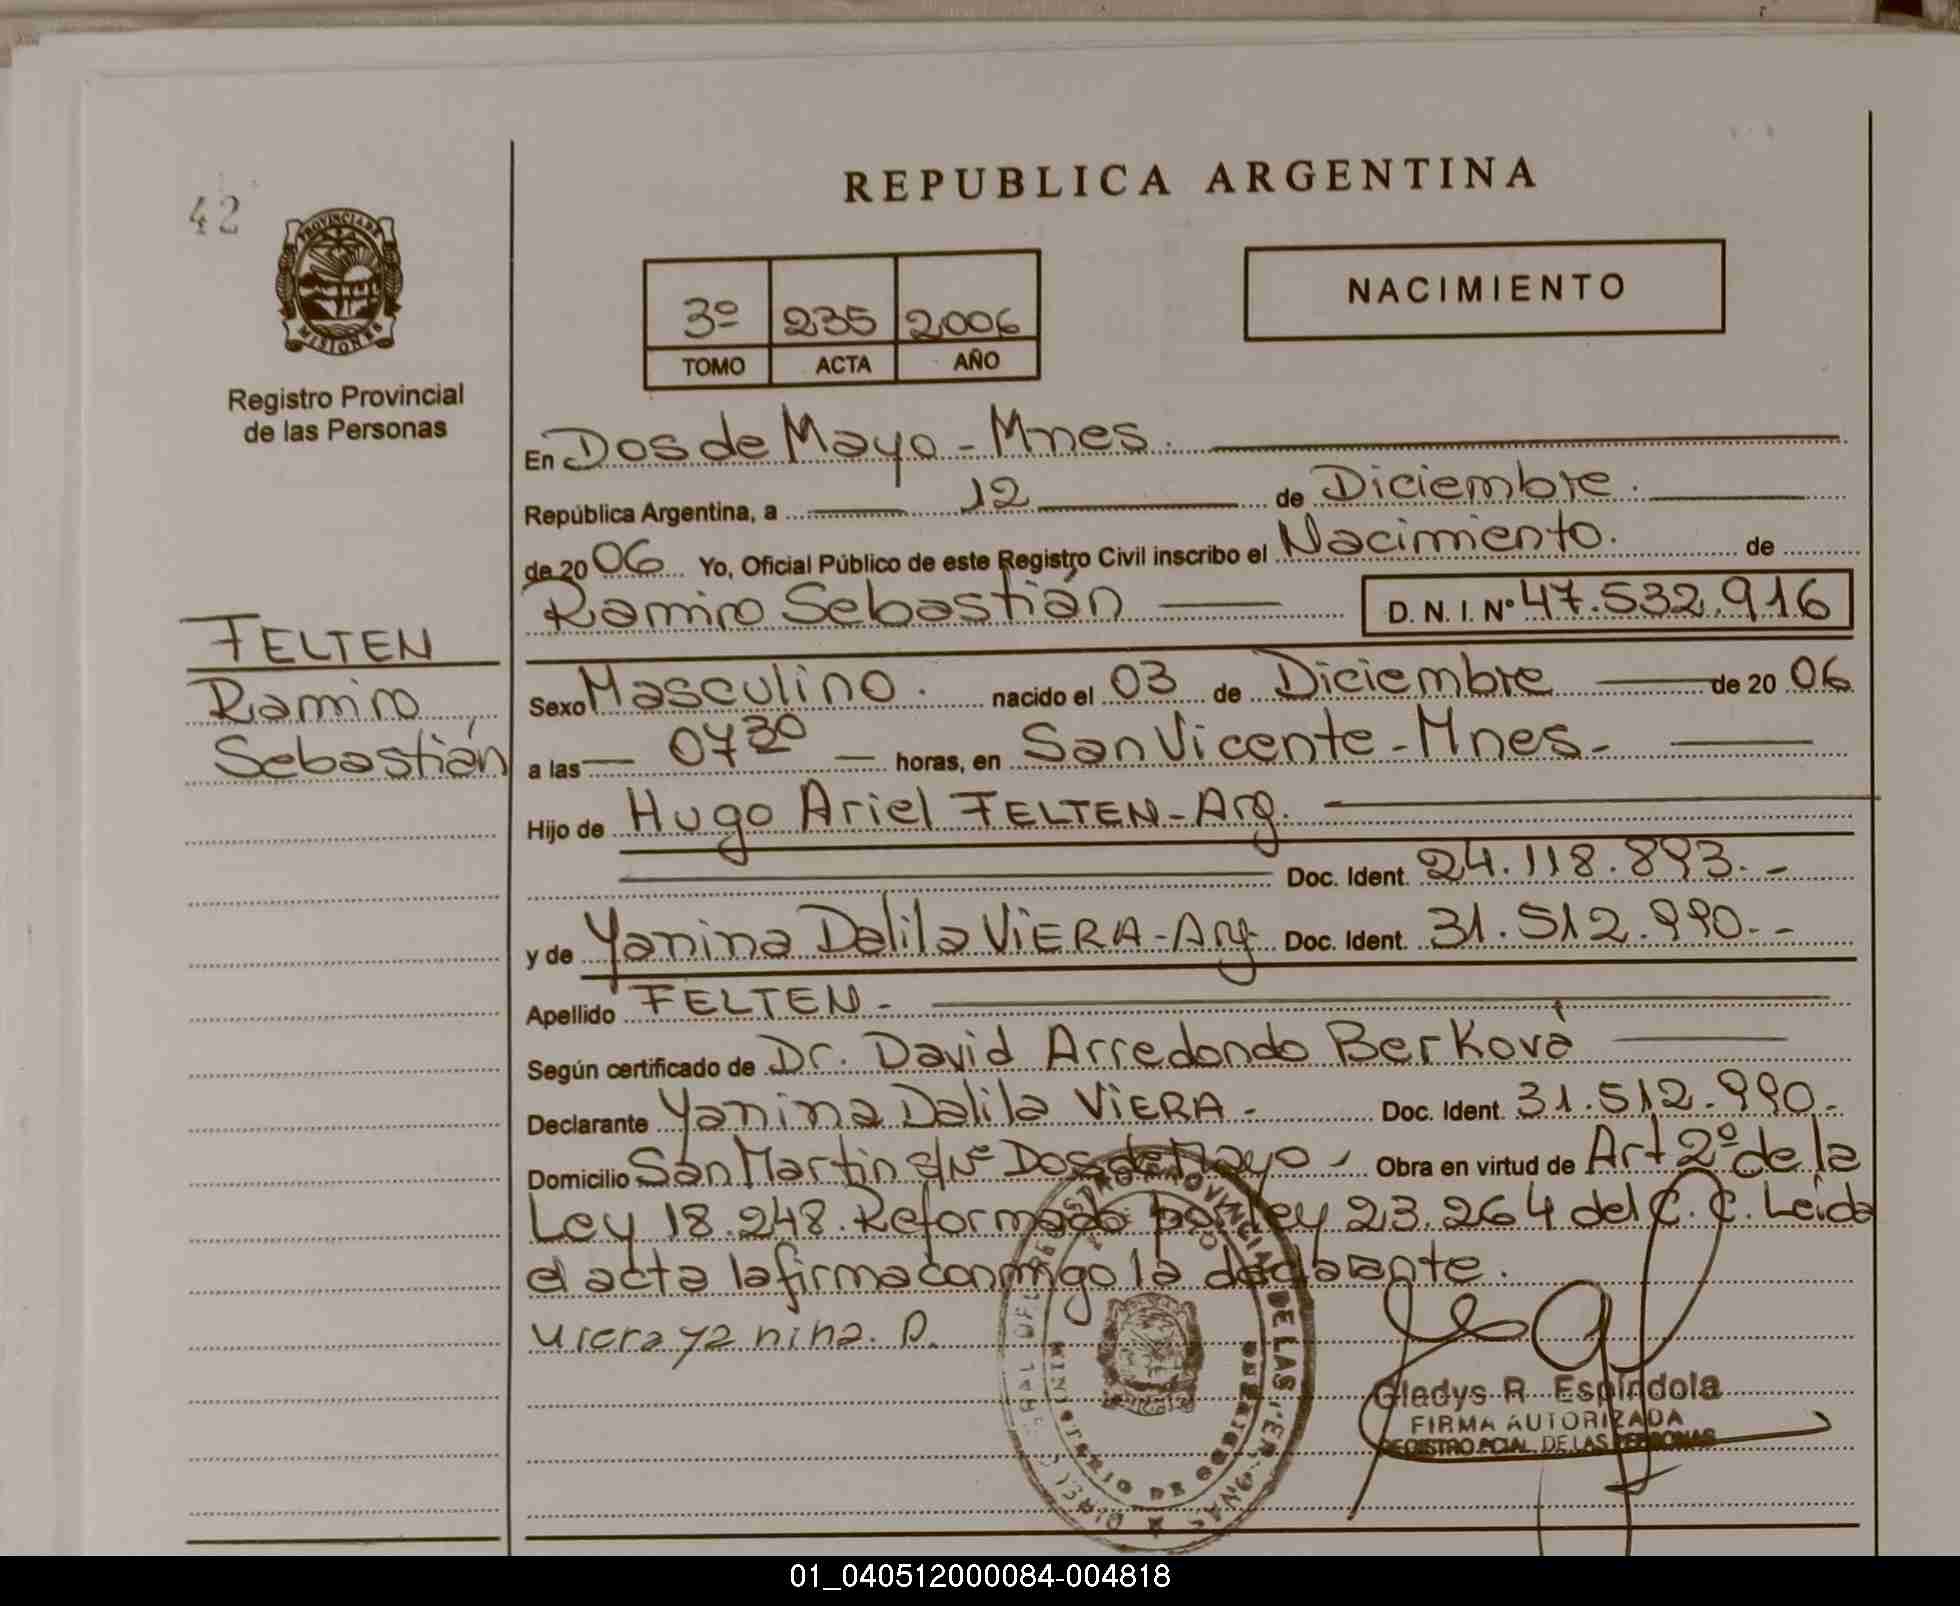 REPUBLICA ARGENTINA
42
PROVINCIA DE
MISIONES
Registro Provincial
de las Personas
3º 235 2006
TOMO ACTA AÑO
NACIMIENTO
En Dos de Mayo - Mnes.
República Argentina, a 12 de Diciembre.
de 20 06 Yo, Oficial Público de este Registro Civil inscribo el Nacimiento. de
Ramiro Sebastián D. N. I. Nº 47.532.916
FELTEN
Ramiro
Sebastián
Sexo Masculino. nacido el 03 de Diciembre de 20 06
a las 0730 horas, en San Vicente - Mnes -
Hijo de Hugo Ariel FELTEN - Arg.
Doc. Ident. 24.118.893.-
y de Yanina Dalila ViERA - Arg Doc. Ident. 31.512.990.-
Apellido FELTEN -
Según certificado de Dr. David Arredondo Berková
Declarante Yanina Dalila ViERA - Doc. Ident. 31.512.990.-
Domicilio San Martin s/Nº Dos de Mayo - Obra en virtud de Art 2º de la
Ley 18.248. Reformado por Ley 23.264 del C. C. Leída
el acta la firma conmigo la declarante.
Viera yanina. D.
REGISTRO PROVINCIAL DE LAS PERSONAS
MINISTERIO DE GOBIERNO
Gladys R. Espíndola
FIRMA AUTORIZADA
REGISTRO PCIAL. DE LAS PERSONAS
01_040512000084-004818